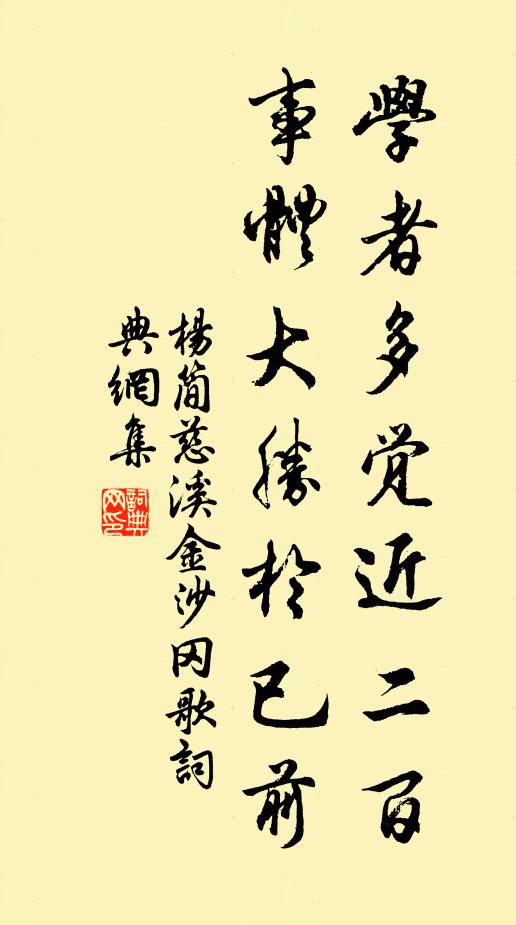 學者多覺近二百
事體大勝於已前
楊簡慈溪金沙冈歌詞
典網集
詞典
网印